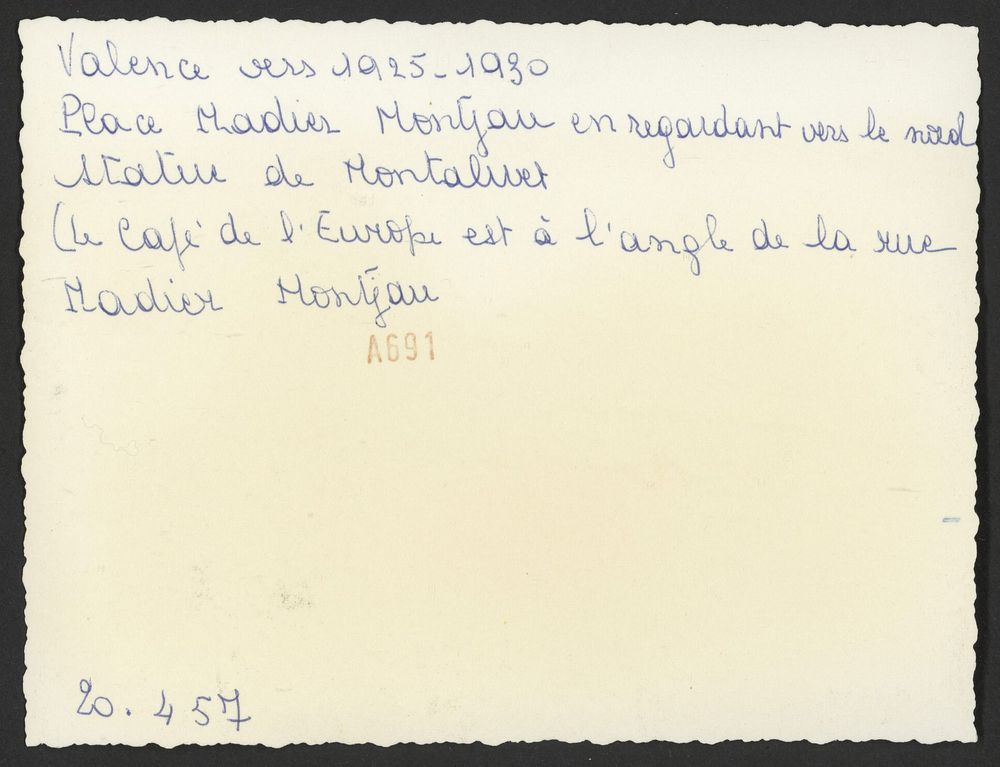 Valence vers 1925-1930
Place Madier Montjau en regardant vers le nord
statue de Montalivet
(Le Café de l'Europe est à l'angle de la rue
Madier Montjau
A691
20.457